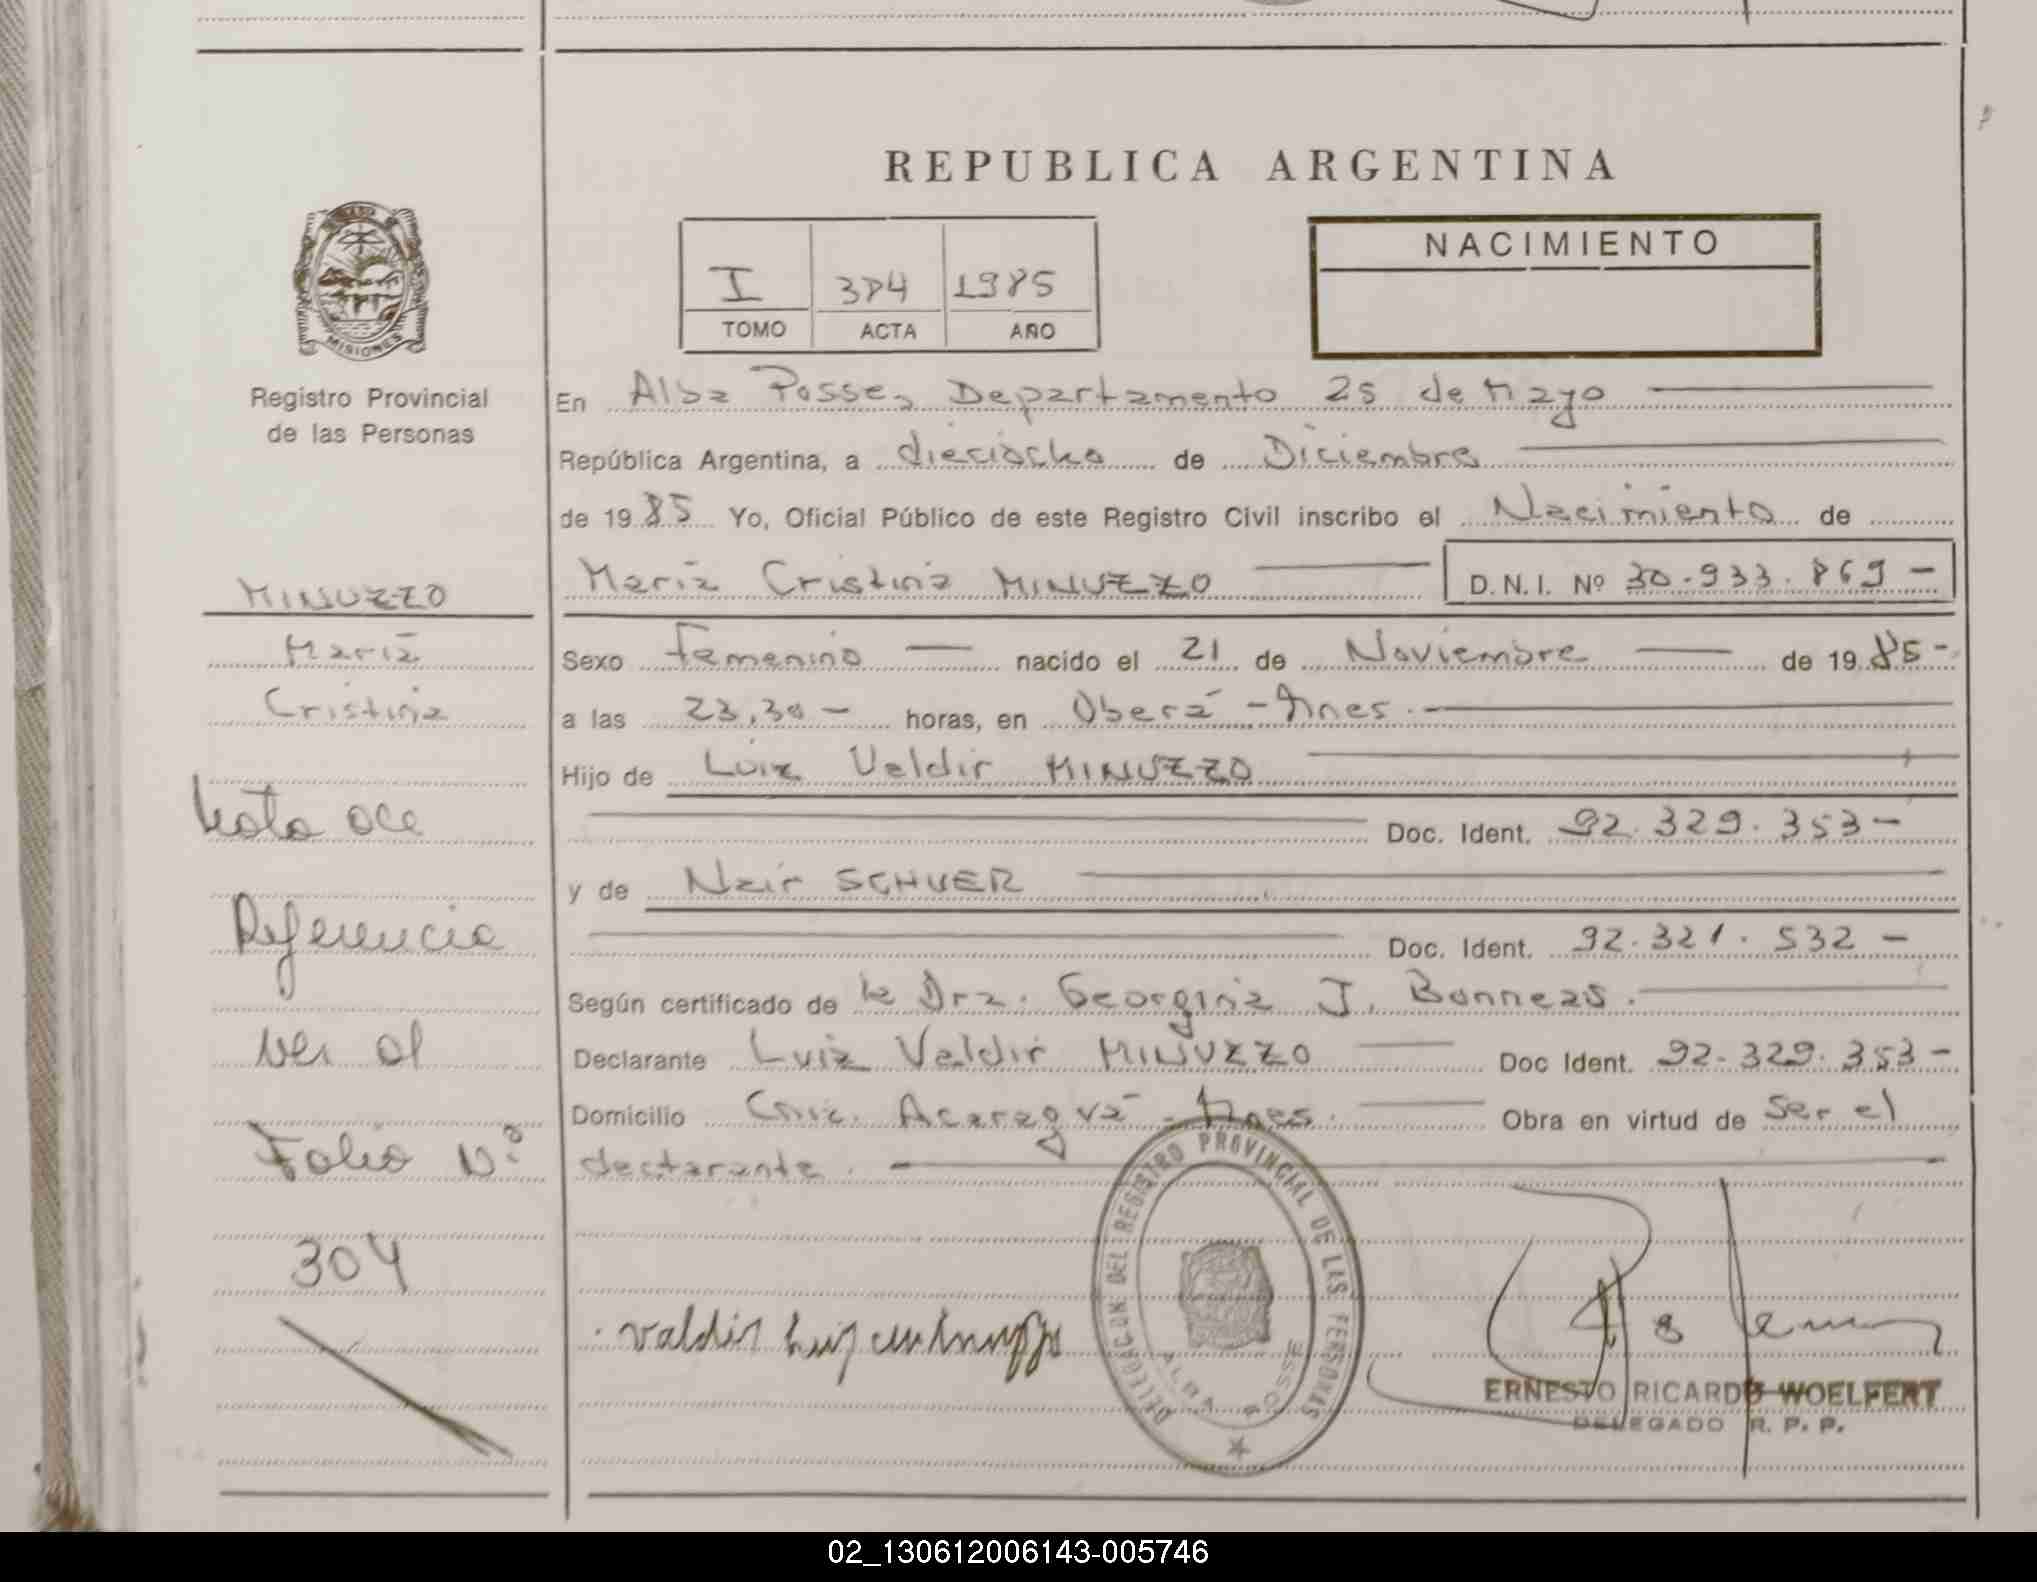 REPUBLICA ARGENTINA
NACIMIENTO
I 384 1985
TOMO ACTA AÑO
MISIONES
Registro Provincial
de las Personas
MINUZZO
Maria
Cristina
Nota
Referencia
ver al
Folio Nº
304
En Alba Posse, Departamento 25 de Mayo
República Argentina, a dieciocho de Diciembre
de 1985 Yo, Oficial Público de este Registro Civil inscribo el Nacimiento de
Maria Cristina MINUZZO D.N.I. Nº 30.933.869-
Sexo Femenino nacido el 21 de Noviembre de 1985-
a las 23,30- horas, en Oberá - Mnes.
Hijo de Luiz Valdir MINUZZO
Doc. Ident. 92.329.353-
y de Nair SCHUER
Doc. Ident. 92.321.532-
Según certificado de la Dra. Georgina J. Bonneas.
Declarante Luiz Valdir MINUZZO Doc Ident. 92.329.353-
Domicilio Cnia. Acaraguá - Mnes. Obra en virtud de ser el
declarante.
DELEGACION DEL REGISTRO PROVINCIAL DE LAS PERSONAS
ALBA POSSE
Valdir Luiz
ERNESTO RICARDO WOELFERT
DELEGADO R. P. P.
02_130612006143-005746